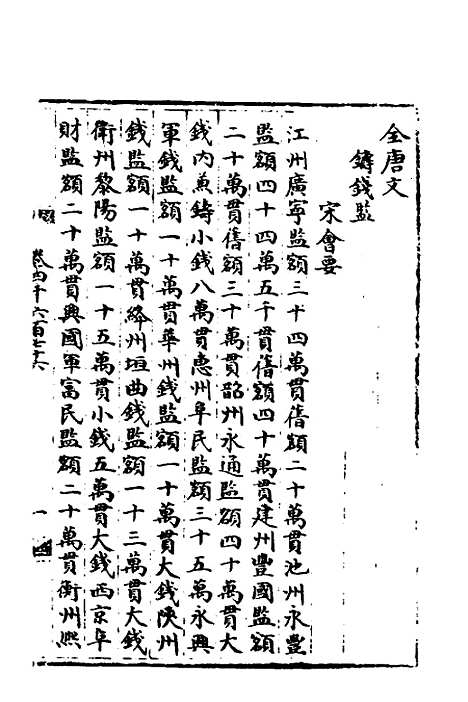 全唐文
鑄錢監
宋會要
江州廣寧監額三十四萬貫舊額二十萬貫池州永豐
監額四十四萬五千貫舊額四十萬貫建州豐國監額
二十萬貫舊額三十萬貫韶州永通監額四十萬貫大
錢内兼鑄小錢八萬貫惠州阜民監額三十五萬永興
軍錢監額一十萬貫華州錢監額一十萬貫大錢陝州
錢監額一十萬貫絳州垣曲錢監額一十三萬貫大錢
衛州黎陽監額一十五萬貫小錢五萬貫大錢西京阜
財監額二十萬貫興國軍富民監額二十萬貫衡州熙
卷四千六百七十六
一